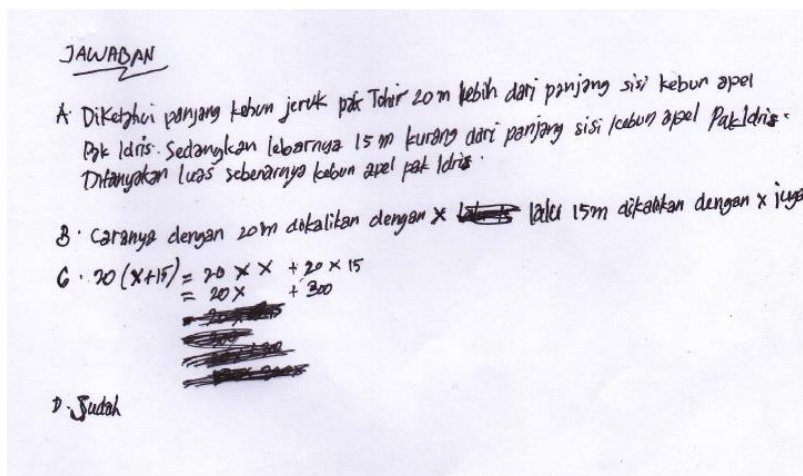 JAWABAN
A. Diketahui panjang kebun jeruk pak Tohir 20 m lebih dari panjang sisi kebun apel
Pak Idris. Sedangkan lebarnya 15 m kurang dari panjang sisi kebun apel Pak Idris.
Ditanyakan luas sebenarnya kebun apel pak Idris.
B. Caranya dengan 20 m dikalikan dengan x lalu 15m dikalikan dengan x juga
C. 20 (x+15) = 20 × x + 20 × 15
= 20x + 300
D. Sudah